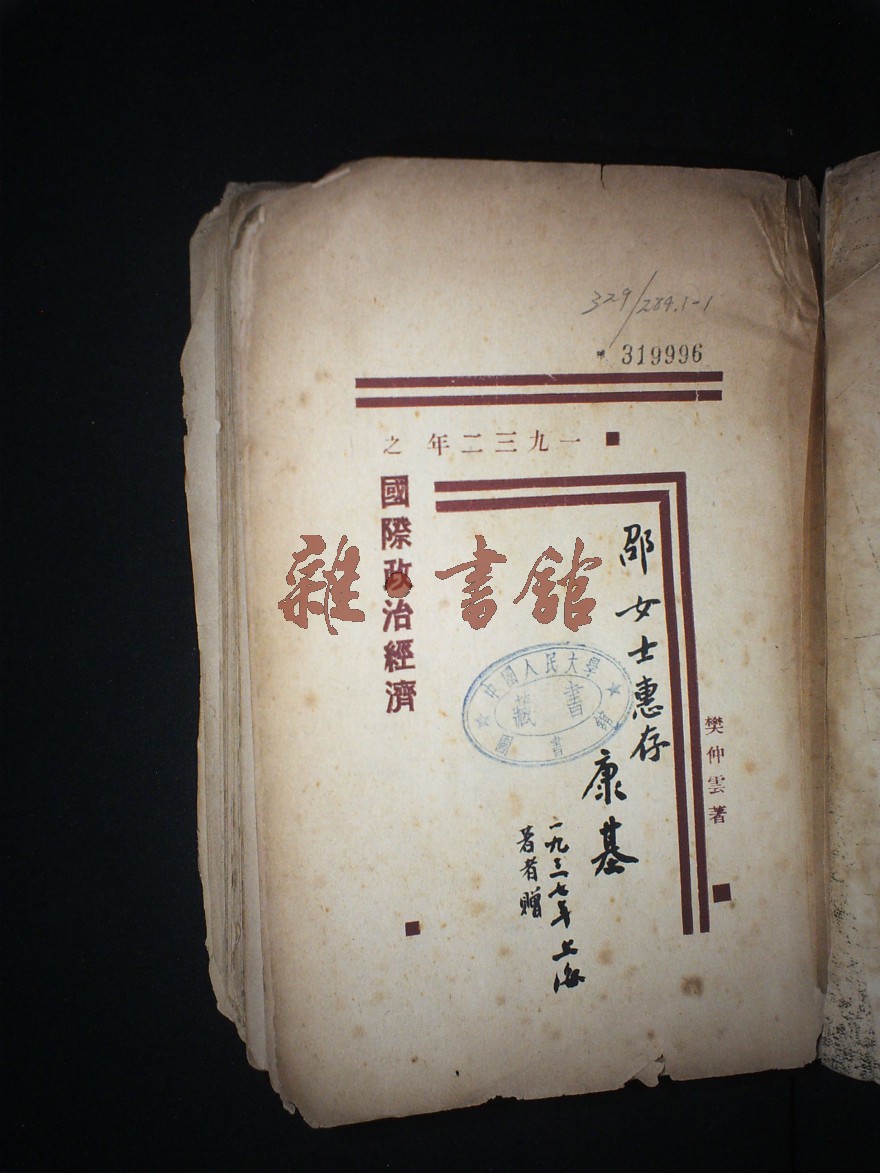 329/284.1-1
319996
一九三二年之
國際政治經濟
樊仲雲著
邵女士惠存
康基
一九三七年上海
著者贈
中國人民大學
藏書
圖書館
雜·書館